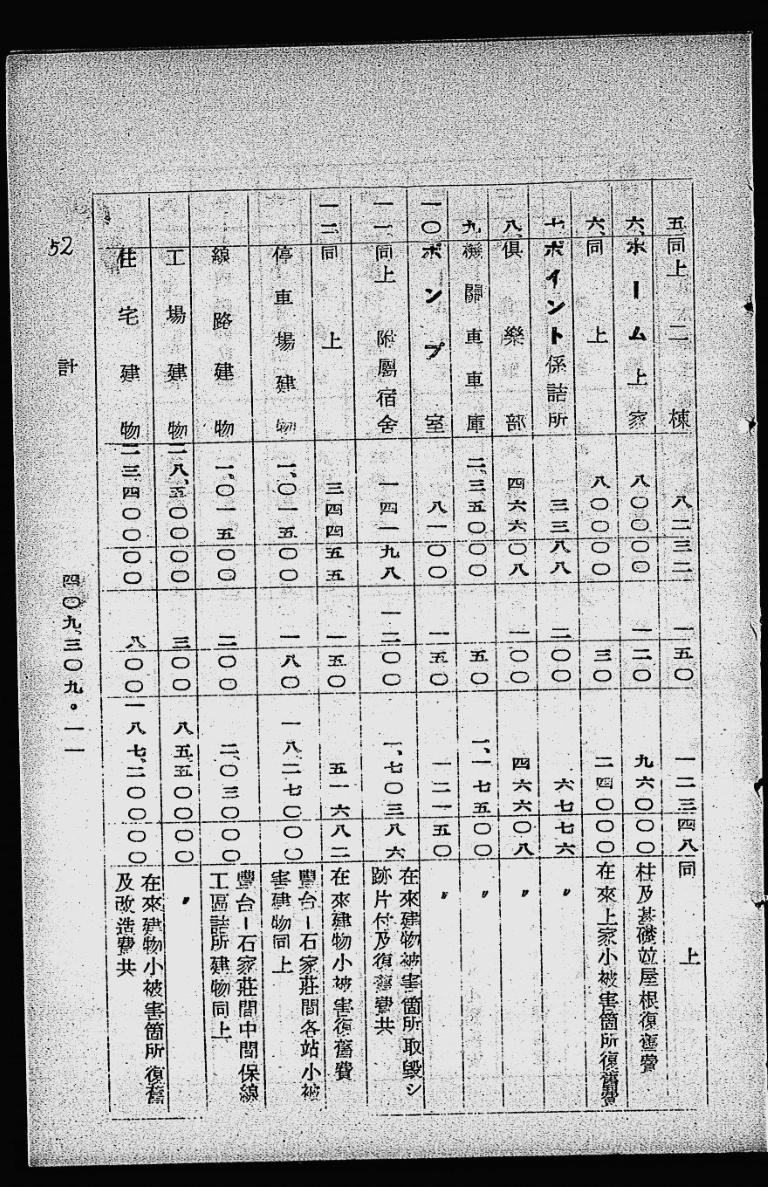 五 同上二棟 八二三二 一五〇 一二三四八 同上
六、ホーム上家 八〇〇〇〇 一二〇 九六〇〇〇 柱及基礎竝屋根復舊費
六、同上 八〇〇〇〇 三〇 二四〇〇〇 在來上家小被害箇所復舊費
七、ポイント係詰所 三三八八 二〇〇 六七七六 〃
八、俱樂部 四六六〇八 一〇〇 四六六〇八 〃
九 機關車車庫 二、三五〇〇〇 五〇 一、一七五〇〇 〃
一〇 ポンプ室 八一〇〇 一五〇 一二一五〇 〃
一一 同上附屬宿舍 一四一九八 一二〇〇 一、七〇三八六 在來建物被害箇所取毀シ
跡片付及復舊費共
一二 同上 三四四五五 一五〇 五一六八二 在來建物小被害復舊費
停車場建物 一、〇一五〇〇 一八〇 一八二七〇〇〇 豐台ー石家莊間各站小被
害建物同上
線路建物 一、〇一五〇〇 二〇〇 二、〇三〇〇〇 豐台ー石家莊間中間保線
工區詰所建物同上
工場建物 二八、五〇〇〇〇 三〇〇 八五五〇〇〇〇 〃
住宅建物 二三四〇〇〇〇 八〇〇 一八七、二〇〇〇〇 在來建物小被害箇所復舊
及改造費共
計 四〇九、三〇九。一一
52